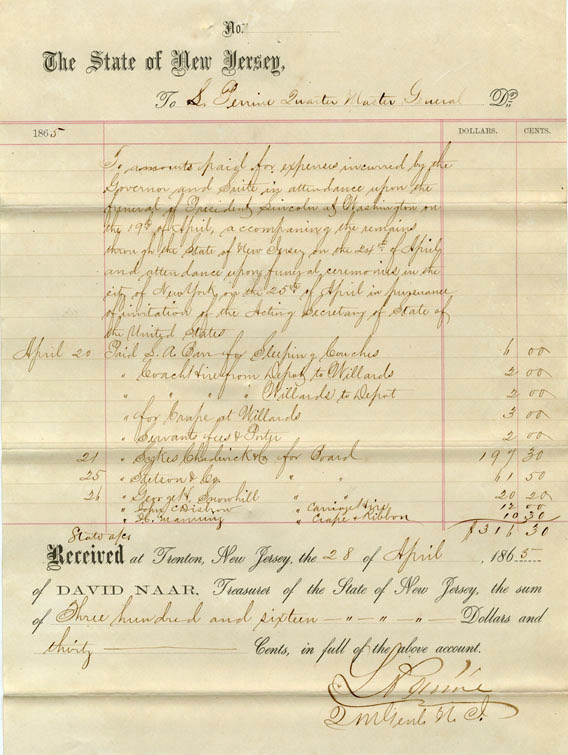 No.
The State of New Jersey,
To L. Perrine Quarter Master General Dr.
1865 DOLLARS. CENTS.
To amounts paid for expenses incurred by the
Governor and Suite in attendance upon the
funeral of President Lincoln at Washington on
the 19th of April, accompaning the remains
through the State of New Jersey on the 24th of April
and attendance upon funeral ceremonies in the
city of New York on the 25th of April in pursuance
of invitation of the Acting Secretary of State of
the United States
April 20 Paid S. A. Barr for Sleeping Couches 6 00
" Coach Hire from Depot to Willards 2 00
" " " " Willards to Depot 2 00
" for Crape at Willards 3 00
" Servants fees & Porter 2 00
21 " Sykes Chadwick & Co for Board 197 30
25 " Stetson & Co. " " 61 50
26 " George H. Snowhill " " 20 20
" John C Disbrow " Carriage Hire 12 00
" H. Manning " Crape & Ribbon 10 30
$316 30
State a/c
Received at Trenton, New Jersey, the 28 of April, 1865
of DAVID NAAR, Treasurer of the State of New Jersey, the sum
of Three hundred and sixteen — " — " — " — Dollars and
thirty Cents, in full of the above account.
L Perrine
Q M Genl N. J.